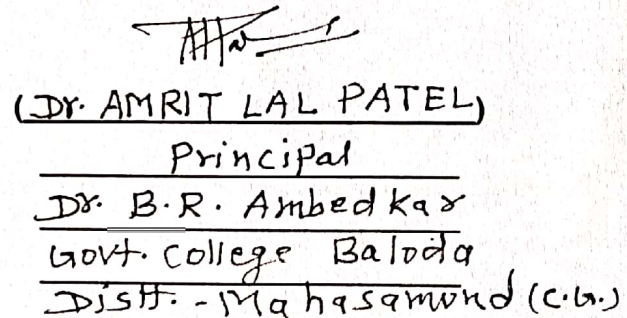 (Dr. AMRIT LAL PATEL)
Principal
Dr. B.R. Ambedkar
Govt. College Baloda
Distt. - Mahasamund (C.G.)